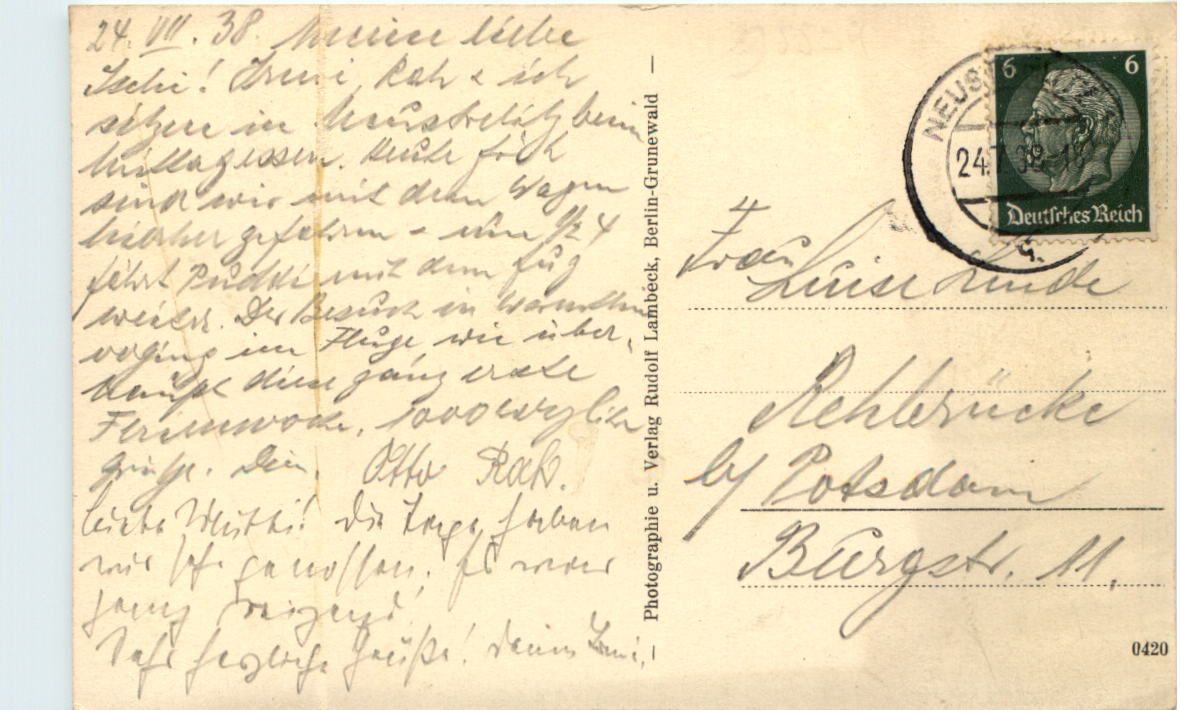 24. VII. 38. Meine liebe
Ischi! Irmi, Rah & ich
sitzen in Neustrelitz beim
Mittagessen. Heute früh
sind wir mit dem Wagen
hierher gefahren - um 1/2 4
fährt mit dem Zug
weiter. Der Besuch in
verging im Fluge wie über-
haupt diese ganz erste
Ferienwoche. 1000 herzliche
Grüße. Dein Otto Rah.
Liebe Mutti! Die Tage haben
wir sehr genossen. Es war
ganz reizend!
Sehr herzliche Grüße! Deine Irmi.
Photographie u. Verlag Rudolf Lambeck, Berlin-Grunewald
6 6
NEUS
24.7.38-18
Deutsches Reich
Frau
Luise Linde
Rehbrücke
b/ Potsdam
Burgstr. 11.
0420